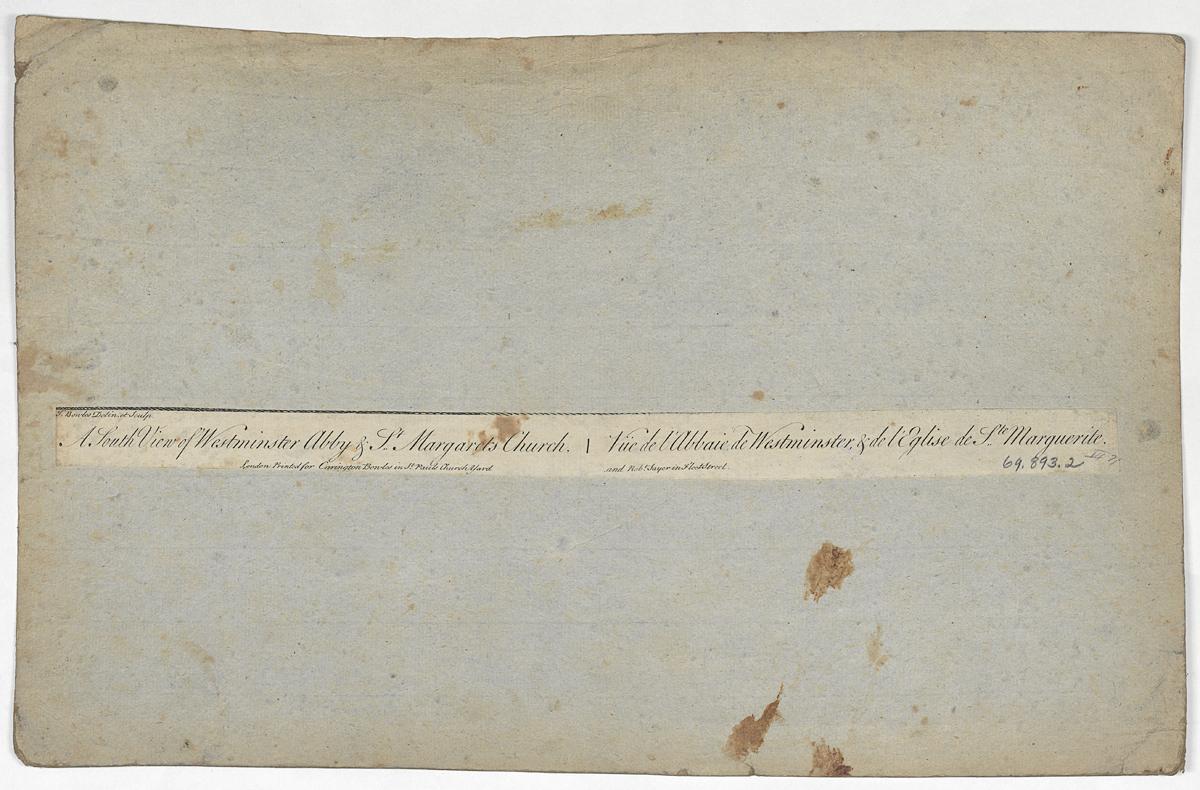 T. Bowles Delin. et Sculp.
A South View of Westminster Abby & St. Margarets Church. | Vüe de l'Abbaie de Westminster, & de l'Eglise de Ste. Marguerite.
London Printed for Carington Bowles in St. Pauls Church Yard and Robt. Sayer in Fleet Street
69.893.2